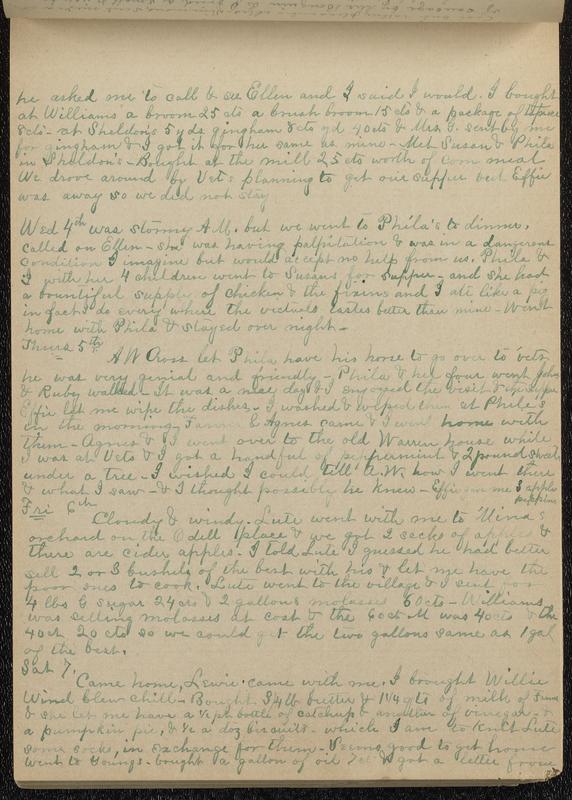 he asked me to call & see Ellen and I said I would. I bought
at Williams a broom 25 cts a brush broom 15 cts & a package of
8cts - at Sheldons 5 yds gingham 8cts yd 40cts & Mrs G. sent by me
for gingham & I got it for her same as mine - Met Susan & Phila
in Sheldon's - Bought at the mill 25 cts worth of corn meal
We drove around by Vets planning to get our supper but Effie
was away so we did not stay
Wed 4th was stormy A.M. but we went to Phila's to dinner.
called on Ellen - she was having palpitation & was in a dangerous
condition I imagine but would accept no help from us. Phila &
I with her 4 children went to Susans for supper - and she had
a bountiful supply of chicken & the fixins and I ate like a pig
in fact I do every where the victuals tastes better than mine - Went
home with Phila & stayed over night -
Thurs 5th
A W Cross let Phila have his horse to go over to Vets
he was very genial and friendly - Phila & her four went John
& Ruby walked - it was a nice day & I enjoyed the visit &
Effie let me wipe the dishes - I washed & wiped them at Phila's
in the morning. Fannie & Agnes came & I went home with
them - Agnes & I went over to the old Warren house while
I was at Vets & I got a handful of peppermint & 2 pound sweet
under a tree - I wished I could tell A.W. how I went there
& what I saw - & I thought possibly he knew - Effie gave me 3 apple
Fri 6th
Cloudy & windy. Lute went with me to Mina's
orchard on the Odell place & we got 2 sacks of apples &
there are cider apples. I told Lute I guessed he had better
sell 2 or 3 bushels of the best with his & let me have the
poor ones to cook. Lute went to the village & I sent for
4 lbs G sugar 24cts & 2 gallons molasses 60cts - Williams
was selling molasses at cost & the 60ct M was 40cts & the
40ct 20 cts so we could get the two gallons same as 1 gal
of the best.
Sat 7.
Came home, Lewie came with me. I brought Willie
Wind blew chill - Bought 3/4 lb butter & 1 1/4 qts of milk of
& she let me have a 1/2 pt bottle of catchup & another of vinegar &
a pumpkin pie, & 1/2 a doz biscuits - which I am to knit Lute
some socks, in exchange for them - Seems good to get home
went to Youngs - bought a gallon of oil & got a letter from